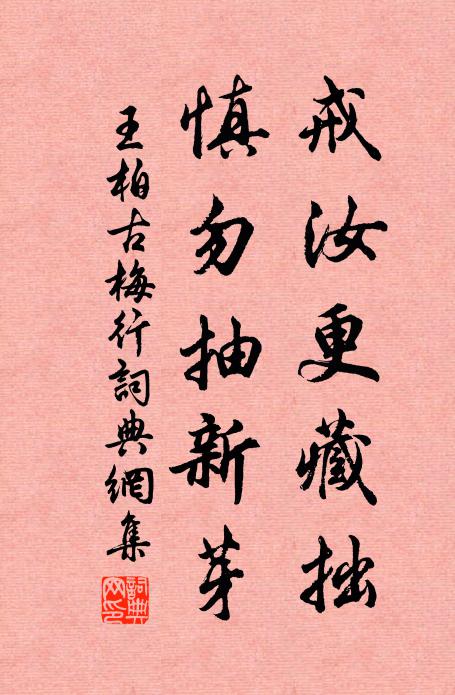 戒汝更藏拙
慎勿抽新芽
王柏古梅行詞典網集
詞典
网印